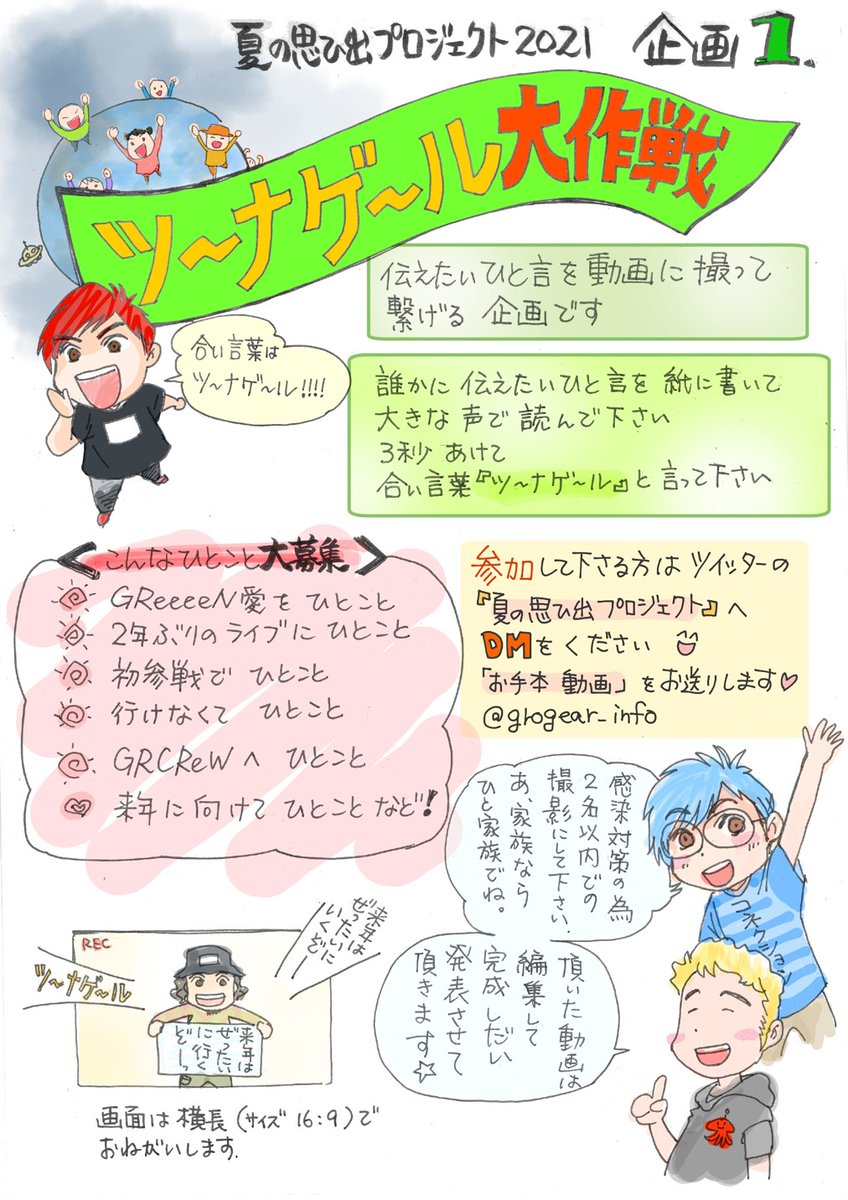 夏の思ひ出プロジェクト2021 企画1.
ツ～ナゲ～ル大作戦
伝えたいひと言を動画に撮って
繋げる 企画です
合い言葉は
ツ～ナゲ～ル!!!!
誰かに 伝えたいひと言を 紙に書いて
大きな 声で 読んで下さい
3秒 あけて
合い言葉『ツ～ナゲ～ル』と 言って下さい
<こんなひとこと大募集>
GReeeeN愛を ひとこと
2年ぶりのライブに ひとこと
初参戦で ひとこと
行けなくて ひとこと
GRCReW へ ひとこと
来年に向けて ひとこと など!
参加して下さる方は ツイッターの
『夏の思ひ出プロジェクト』へ
DMをください
「お手本 動画」をお送りします♡
@grogear_info
感染対策の為
2名以内での
撮影にして下さい.
あ、家族なら
ひと家族でね。
コネクション
頂いた動画は
編集して
完成しだい
発表させて
頂きます☆
REC
ツ～ナゲ～ル
来年は
ぜったいに
いくぞー
来年は
ぜったい
に行く
ぞーっ
画面は 横長 (サイズ 16:9)で
おねがいします.